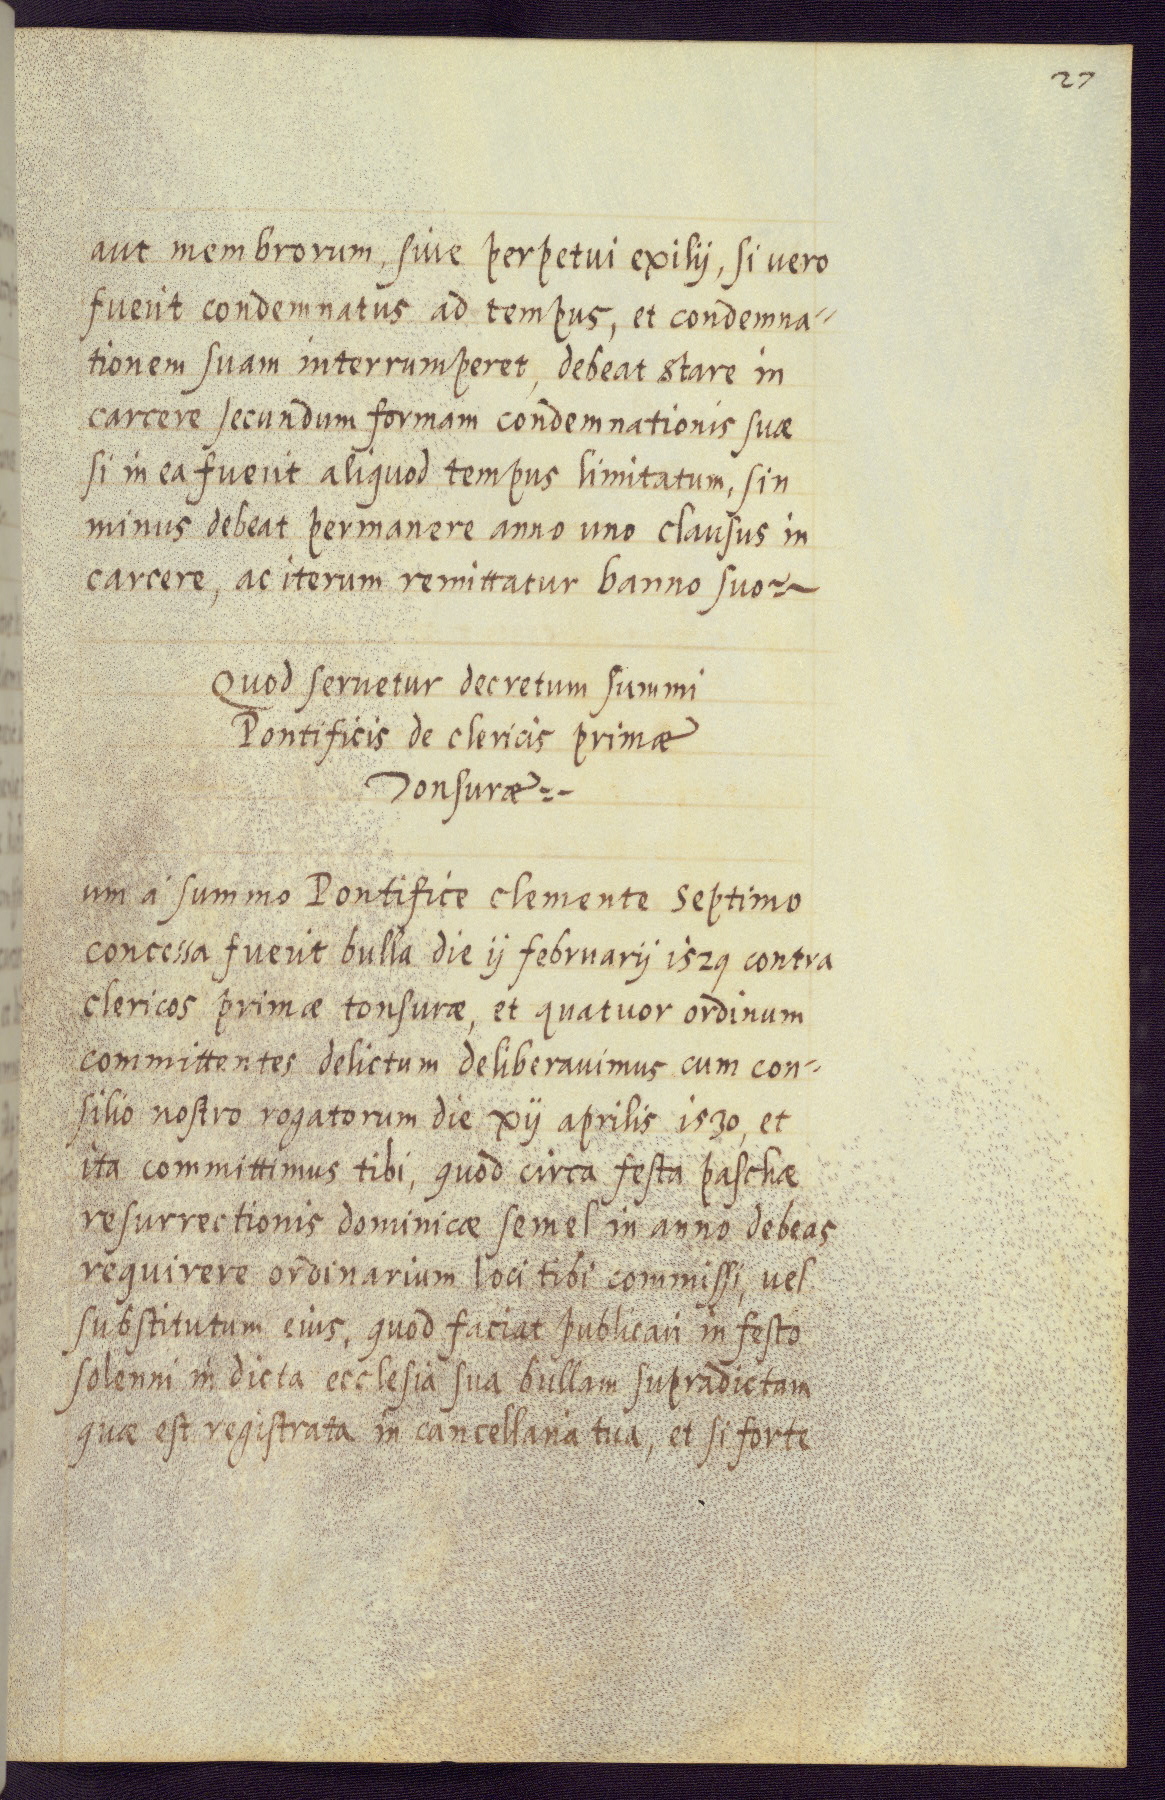 27
aut membrorum, siue perpetui exilij, si uero
fuerit condemnatus ad tempus, et condemna-
tionem suam interrumperet, debeat stare in
carcere secundum formam condemnationis suæ
si in ea fuerit aliquod tempus limitatum, sin
minus debeat permanere anno uno clausus in
carcere, ac iterum remittatur banno suo
Quod seruetur decretum summi
Pontificis de clericis primæ
Tonsuræ
um a' summo Pontifice clemente Septimo
concessa fuerit bulla die ij februarij 1529 contra
clericos primæ tonsuræ, et quatuor ordinum
committentes delictum deliberauimus cum con-
silio nostro rogatorum die xij aprilis 1530, et
ita committimus tibi, quod circa festa paschæ
resurrectionis dominicæ semel in anno debeas
requirere ordinarium loci tibi commissi, uel
substitutum eius, quod faciat publicari in festo
solenni in dicta ecclesia sua bullam supradictam
quæ est registrata in cancellaria tua, et si forte